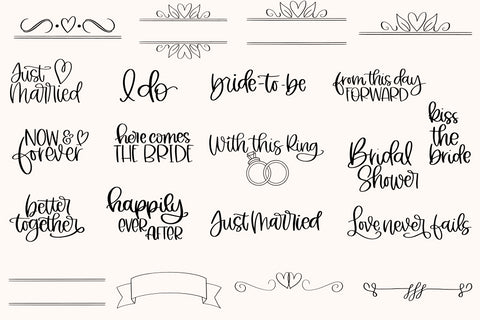 Just
Married
I do
bride-to-be
from this day
FORWARD
kiss
the
bride
NOW &
forever
here comes
THE BRIDE
With this Ring
Bridal
Shower
better
together
happily
EVER
AFTER
Just Married
Love never fails